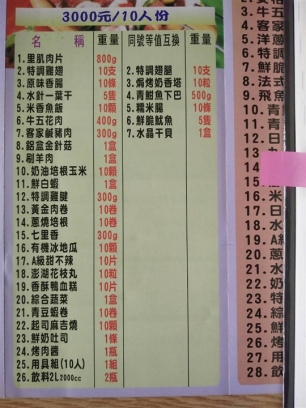 3000元/10人份
名 稱 重量 同號等值互換 重量
1.里肌肉片 800g
2.特調雞翅 10支 2.特調雞腿 10支
3.原味香腸 10條 3.焗烤奶香塔 10粒
4.水針一葉干 5隻 4.青魽魚下巴 500g
5.米香魚餵 10顆 5.糯米腸 10條
6.牛五花肉 400g 6.鮮脆魷魚 5隻
7.客家鹹豬肉 300g 7.水晶干貝 1盒
8.鋁盒金針菇 1盒
9.刷羊肉 1盒
10.奶油培根玉米 10顆
11.鮮白蝦 1盒
12.特調雞腱 300g
13.黃金肉卷 10卷
14.蔥燒培根 10卷
15.七里香 300g
16.有機冰地瓜 10顆
17.A級甜不辣 10片
18.澎湖花枝丸 10粒
19.香酥鴨血糕 10片
20.綜合蔬菜 1盒
21.青豆蝦卷 10卷
22.起司麻吉燒 10顆
23.鮮奶吐司 1條
24.烤肉醬 1瓶
25.用具組(10人) 1組
26.飲料2L2000cc 2瓶
3.
4.牛
5.洋
6.特調
7.鮮脆
8.法式
9.飛魚
10.青
11.青
12.日
13.
14.
15.
16.米
17.日
18.水
19.A
20.蔥
21.水
22.奶
23.特
24.綜
25.鮮
26.烤
27.用
28.飲